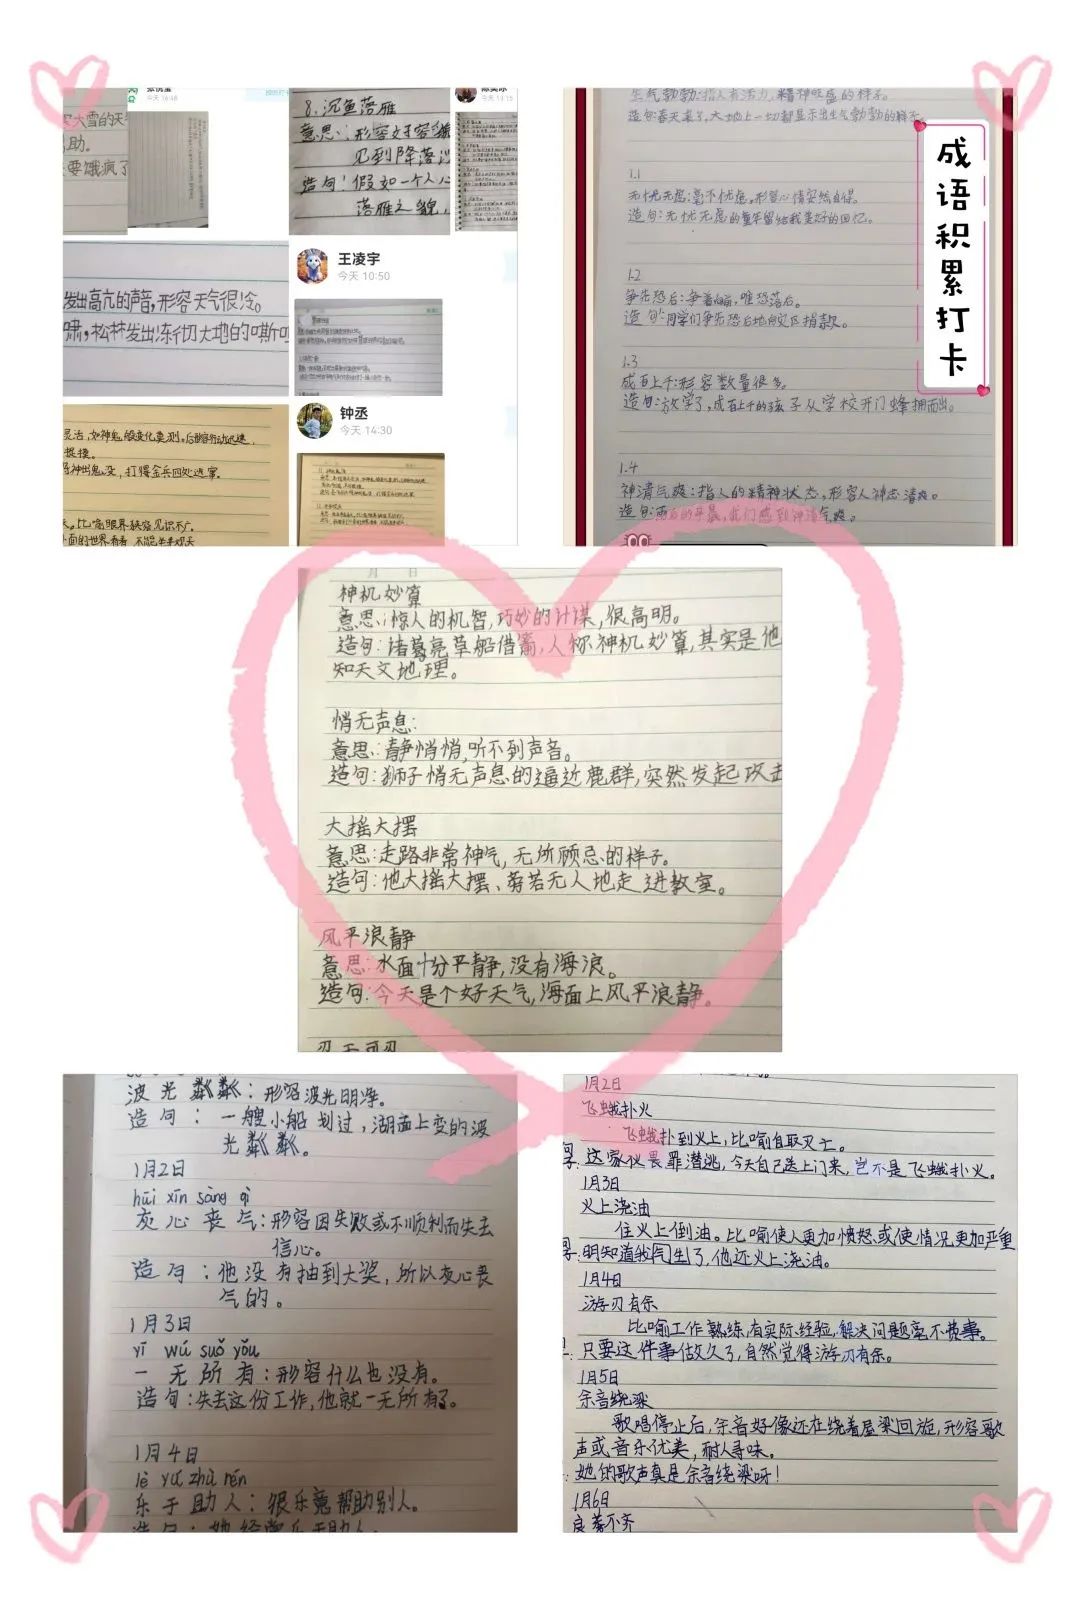 今天 16:48
大雪的天
助。
要饿疯了
8.沉鱼落雁
意思:形容女子容貌
见到降落沙
造句:假如一个人心
落雁之貌,
今天 13:15
发出高亢的声音,形容天气很冷。
啸,松林发出冻彻大地的嘶吼
王凌宇
今天 10:50
灵活,如神鬼般变化莫测。后形容行动迅速,
捉摸。
神出鬼没,打得金兵四处逃窜。
比喻眼界狭窄见识不广
面的世界看看 不能坐井观天
钟丞
今天 14:30
生气勃勃:指人有活力,精神旺盛的样子。
造句:春天来了,大地上一切都显示出生气勃勃的样子。
1.1
无忧无虑:毫不忧虑,形容心情安然自得。
造句:无忧无虑的童年留给我美好的回忆。
1.2
争先恐后:争着向前,唯恐落后。
造句:同学们争先恐后地向灾区捐款。
1.3
成百上千:形容数量很多。
造句:放学了,成百上千的孩子从学校开门蜂拥而出。
1.4
神清气爽:指人的精神状态,形容人神志清爽。
造句:雨后的早晨,我们感到神清气爽。
成语积累打卡
月 日
神机妙算
意思:惊人的机智,巧妙的计谋,很高明。
造句:诸葛亮草船借箭,人称神机妙算,其实是他
知天文地理。
悄无声息:
意思:静悄悄,听不到声音。
造句:狮子悄无声息的逼近鹿群,突然发起攻击
大摇大摆
意思:走路非常神气,无所顾忌的样子。
造句:他大摇大摆、旁若无人地走进教室。
风平浪静
意思:水面十分平静,没有海浪。
造句:今天是个好天气,海面上风平浪静。
忍无可忍
波光粼粼:形容波光明净。
造句:一艘小船划过,湖面上变的波
光粼粼。
1月2日
huī xīn sàng qì
灰心丧气:形容因失败或不顺利而失去
信心。
造句:他没有抽到大奖,所以灰心丧
气的。
1月3日
yī wú suǒ yǒu
一无所有:形容什么也没有。
造句:失去这份工作,他就一无所有了。
1月4日
lè yú zhù rén
乐于助人:很乐意帮助别人。
造句:她经常乐于助人
1月2日
飞蛾扑火
飞蛾扑到火上,比喻自取灭亡。
这家伙畏罪潜逃,今天自己送上门来,岂不是飞蛾扑火。
1月3日
火上浇油
往火上倒油。比喻使人更加愤怒或使情况更加严重
明知道我气生了,他还火上浇油。
1月4日
游刃有余
比喻工作熟练,有实际经验,解决问题毫不费事。
只要这件事做久了,自然觉得游刃有余。
1月5日
余音绕梁
歌唱停止后,余音好像还在绕着屋梁回旋,形容歌
声或音乐优美,耐人寻味。
她的歌声真是余音绕梁呀!
1月6日
良莠不齐